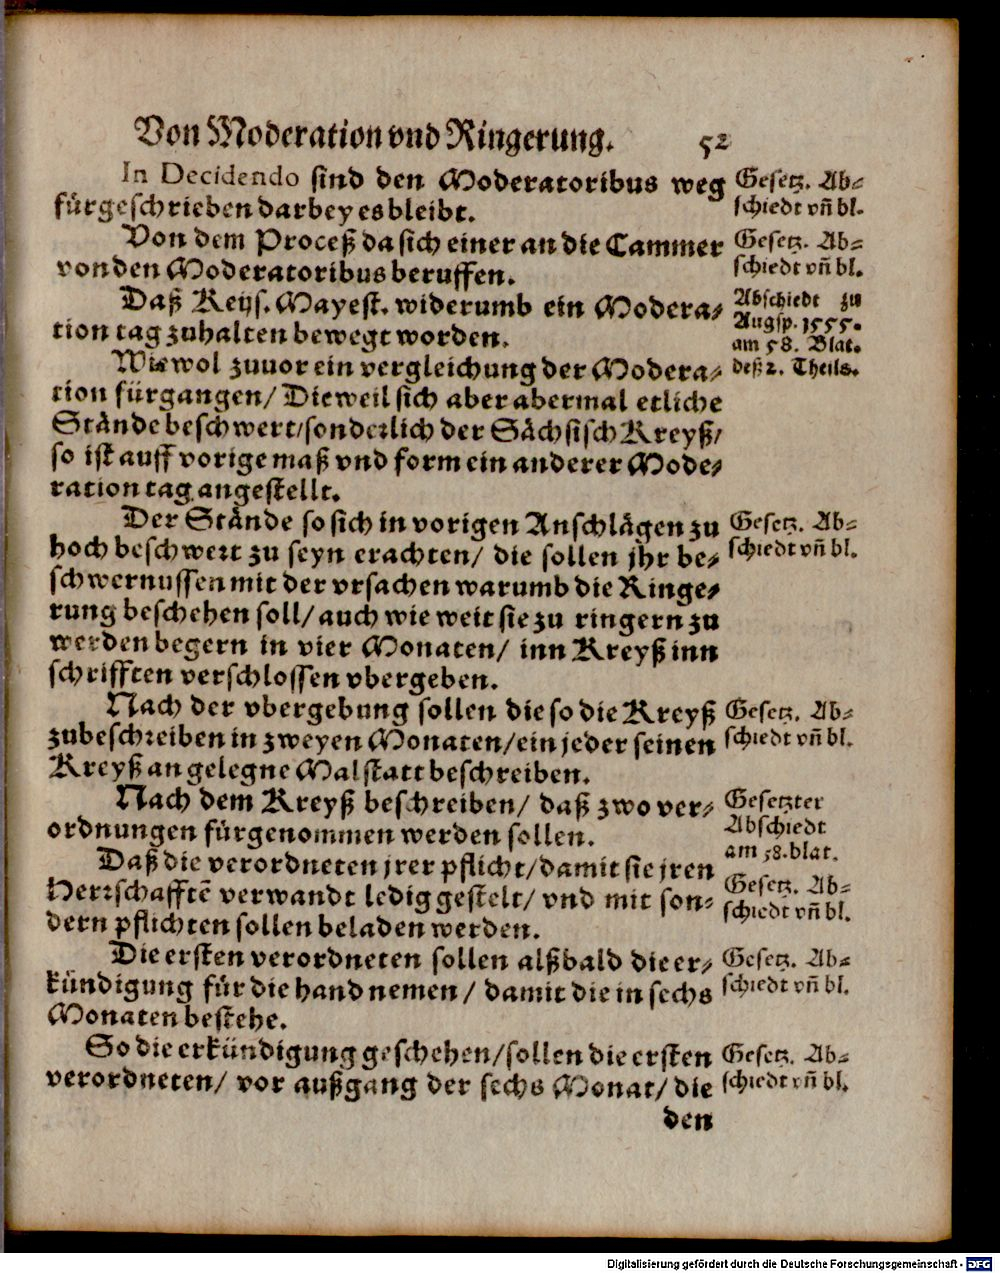 Von Moderation vnd Ringerung. 52
In Decidendo sind den Moderatoribus weg
fürgeschrieben darbey es bleibt.
Gesetz. Ab-
schiedt vñ bl.
Von dem Proceß da sich einer an die Cammer
von den Moderatoribus beruffen.
Gesetz. Ab-
schiedt vñ bl.
Daß Keys. Mayest. widerumb ein Modera-
tion tag zuhalten bewegt worden.
Abschiedt zu
Augsp. 1555.
am 58. Blat.
deß 2. Theils.
Wiewol zuuor ein vergleichung der Modera-
tion fürgangen/ Dieweil sich aber abermal etliche
Stände beschwert/ sonderlich der Sächsisch Kreyß/
so ist auff vorige maß vnd form ein anderer Mode-
ration tag angestellt.
Der Stände so sich in vorigen Anschlägen zu
hoch beschwert zu seyn erachten/ die sollen jhr be-
schwernussen mit der vrsachen warumb die Ringe-
rung beschehen soll/ auch wie weit sie zu ringern zu
werden begern in vier Monaten/ inn Kreyß inn
schrifften verschlossen vbergeben.
Gesetz. Ab-
schiedt vñ bl.
Nach der vbergebung sollen die so die Kreyß
zubeschreiben in zweyen Monaten/ ein jeder seinen
Kreyß an gelegne Malstatt beschreiben.
Gesetz. Ab-
schiedt vñ bl.
Nach dem Kreyß beschreiben/ daß zwo ver-
ordnungen fürgenommen werden sollen.
Gesetzter
Abschiedt
am 58. blat.
Daß die verordneten jrer pflicht/ damit sie jren
Herrschafftẽ verwandt ledig gestelt/ vnd mit son-
dern pflichten sollen beladen werden.
Gesetz. Ab-
schiedt vñ bl.
Die ersten verordneten sollen alßbald die er-
kündigung für die hand nemen/ damit die in sechs
Monaten bestehe.
Gesetz. Ab-
schiedt vñ bl.
So die erkündigung geschehen/ sollen die ersten
verordneten/ vor außgang der sechs Monat/ die
Gesetz. Ab-
schiedt vñ bl.
den
Digitalisierung gefördert durch die Deutsche Forschungsgemeinschaft - DFG